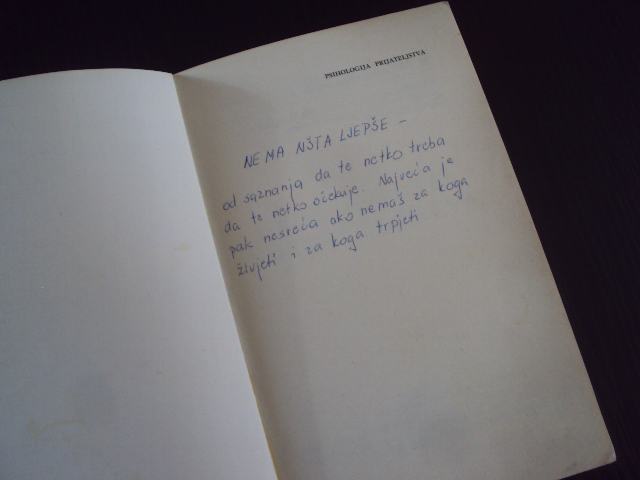 PSIHOLOGIJA PRIJATELJSTVA
NEMA NŠTA LJEPŠE -
od saznanja da te netko treba
da te netko očekuje. Najveća je
pak nesreća ako nemaš za koga
živjeti i za koga trpjeti